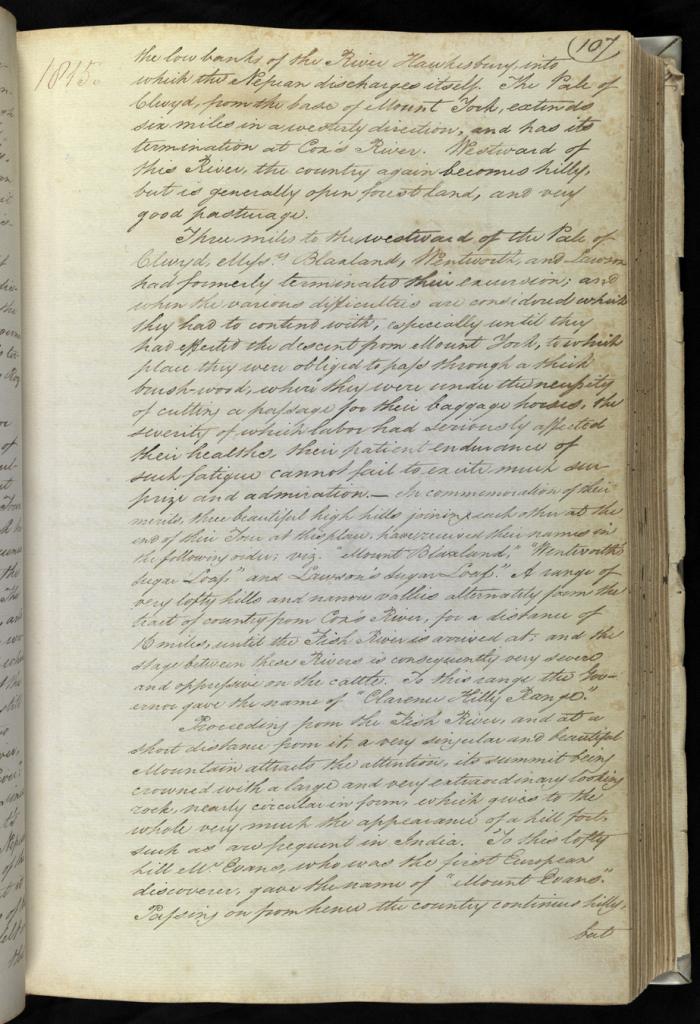 107
1815.
the low banks of the River Hawkesbury, into
which the Nepean discharges itself. The Vale of
Clwyd, from the base of Mount York, extends
six miles in a westerly direction, and has its
termination at Cox's River. Westward of
this River, the country again becomes hilly,
but is generally open forest land, and very
good pasturage.
Three miles to the westward of the Vale of
Clwyd, Messrs. Blaxland, Wentworth, and Lawson
had formerly terminated their excursion; and
when the various difficulties are considered which
they had to contend with, especially until they
had effected the descent from Mount York, to which
place they were obliged to pass through a thick
brush-wood, where they were under the necessity
of cutting a passage for their baggage horses, the
severity of which labor had seriously affected
their healths, their patient endurance of
such fatigue cannot fail to excite much sur-
prize and admiration. — In commemoration of their
merits, three beautiful high hills joining each other at the
end of their Tour at this place, have received their names in
the following order; viz. "Mount Blaxland," "Wentworth's
Sugar Loaf," and Lawson's Sugar Loaf." A range of
very lofty hills and narrow vallies alternately form the
tract of country from Cox's River, for a distance of
16 miles, until the Fish River is arrived at; and the
stage between these Rivers is consequently very severe
and oppressive on the cattle. To this range the Gov-
ernor gave the name of "Clarence Hilly Range."
Proceeding from the Fish River, and at a
short distance from it, a very singular and beautiful
Mountain attracts the attention, its summit being
crowned with a large and very extraordinary looking
rock, nearly circular in form, which gives to the
whole very much the appearance of a hill fort,
such as are frequent in India. To this lofty
hill Mr. Evans, who was the first European
discoverer, gave the name of "Mount Evans."
Passing on from hence the country continues hilly,
but